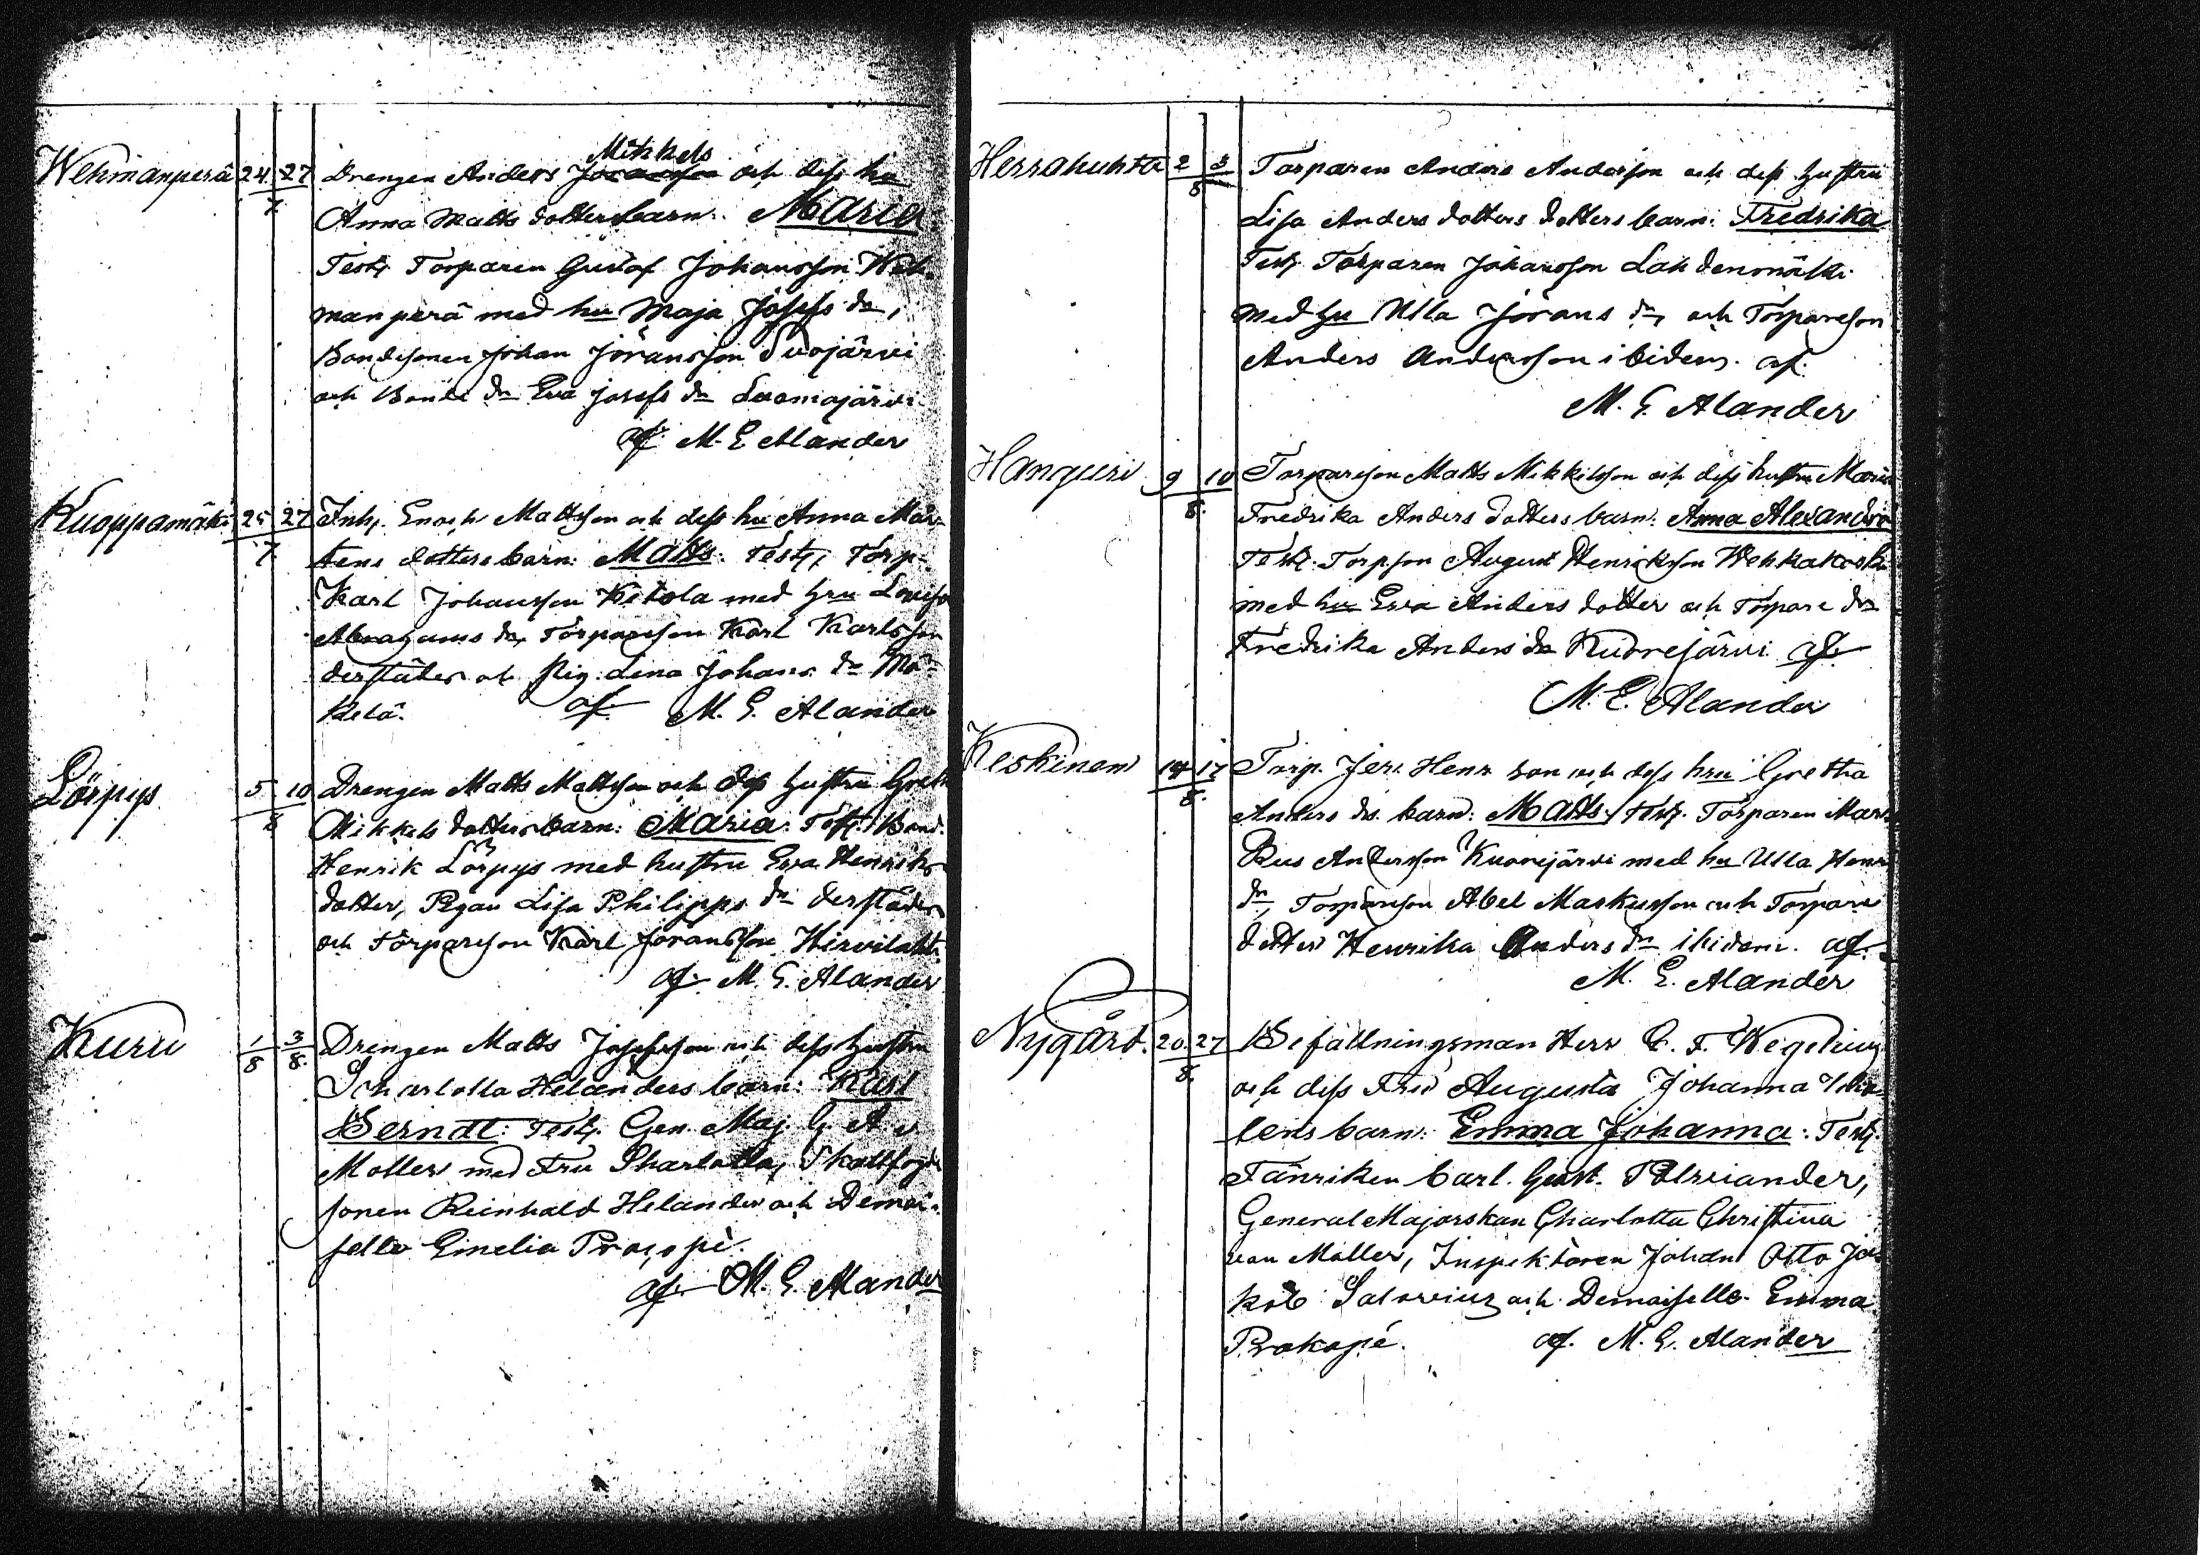 Wehmanperä 24 27/7 Drengen Anders Mikkels och dess hu
Anna Matts dotters barn: Maria.
Test. Torparen Gustaf Johansson Weh
manperä med hu Maja Josefs dr,
Bondesonen Johan Jöransson Suojärvi
och Bonde dr Eva Josefs dr Luomajärvi
af M. E. Alander
Kuoppamäki 25 27/7 Inh. Enoch Mattsson och dess hu Anna Mår-
tens dotters barn: Matts. Test. Torp.
Karl Johansson Ketola med hru Lovisa
Abrahams dr, Torpareson Karl Karlsson
derstädes och Pig. Lena Johans dr Mä-
kelä. af. M. E. Alander
Lörpys 5 10/8 Drengen Matts Mattsson och dess hustru Greth
Mikkels dotters barn: Maria. Test. Bond.
Henrik Lörpys med hustru Eva Henriks
dotter, Pigan Lisa Philipps dr derstädes
och Torpareson Karl Jöransson Hirvilaht.
af M. E. Alander
Kuru 1/8 3/8 Drengen Matts Josefsson och dess hustru
Scharlotta Helanders barn: Karl
Berndt. Test. Gen. Maj. G. A. v
Moller med Fru Sharlotta, Skattfogde
sonen Reinhold Helander och Demoi-
selle Emelia Procopé.
af. M. E. Alander
Herrakuhta 2 3/8 Torparen Anders Andersson och dess hustru
Lisa Anders dotters dotters barn: Fredrika
Test. Torparen Johansson Lahdenmäki
med hu Ulla Jörans dr, och Torpareson
Anders Andersson ibidem. af.
M. E. Alander
Hanguri 9 10/8 Torpareson Matts Mikkelsson och dess hustru Maria
Fredrika Anders dotters barn: Anna Alexandra
Test. Torpson August Henriksson Wehkakoski
med hu Eva Anders dotter och Torpare dr
Fredrika Anders dr Kuorejärvi af.
M. E. Alander
Keskinen 14 17/8 Torp. Jer. Henr son och dess hru Gretha
Anders drs. barn: Matts. Test. Torparen Mar-
kus Andersson Kuorejärvi med hu Ulla Henr
dr, Torpareson Abel Markusson och Torpare
dotter Henrika Anders dr ibidem. af.
M. E. Alander
Nygård. 20 27/8 Befallningsman Herr C. F. Wegelius
och dess Fru Augusta Johanna
lens barn: Emma Johanna: Test.
Fänriken Carl. Gust. Polviander,
General Majorskan Charlotta Christina
von Möller, Inspektoren Johan Otto Ja-
kob Salovius och Demoiselle Emma
Prokopé. af. M. E. Alander